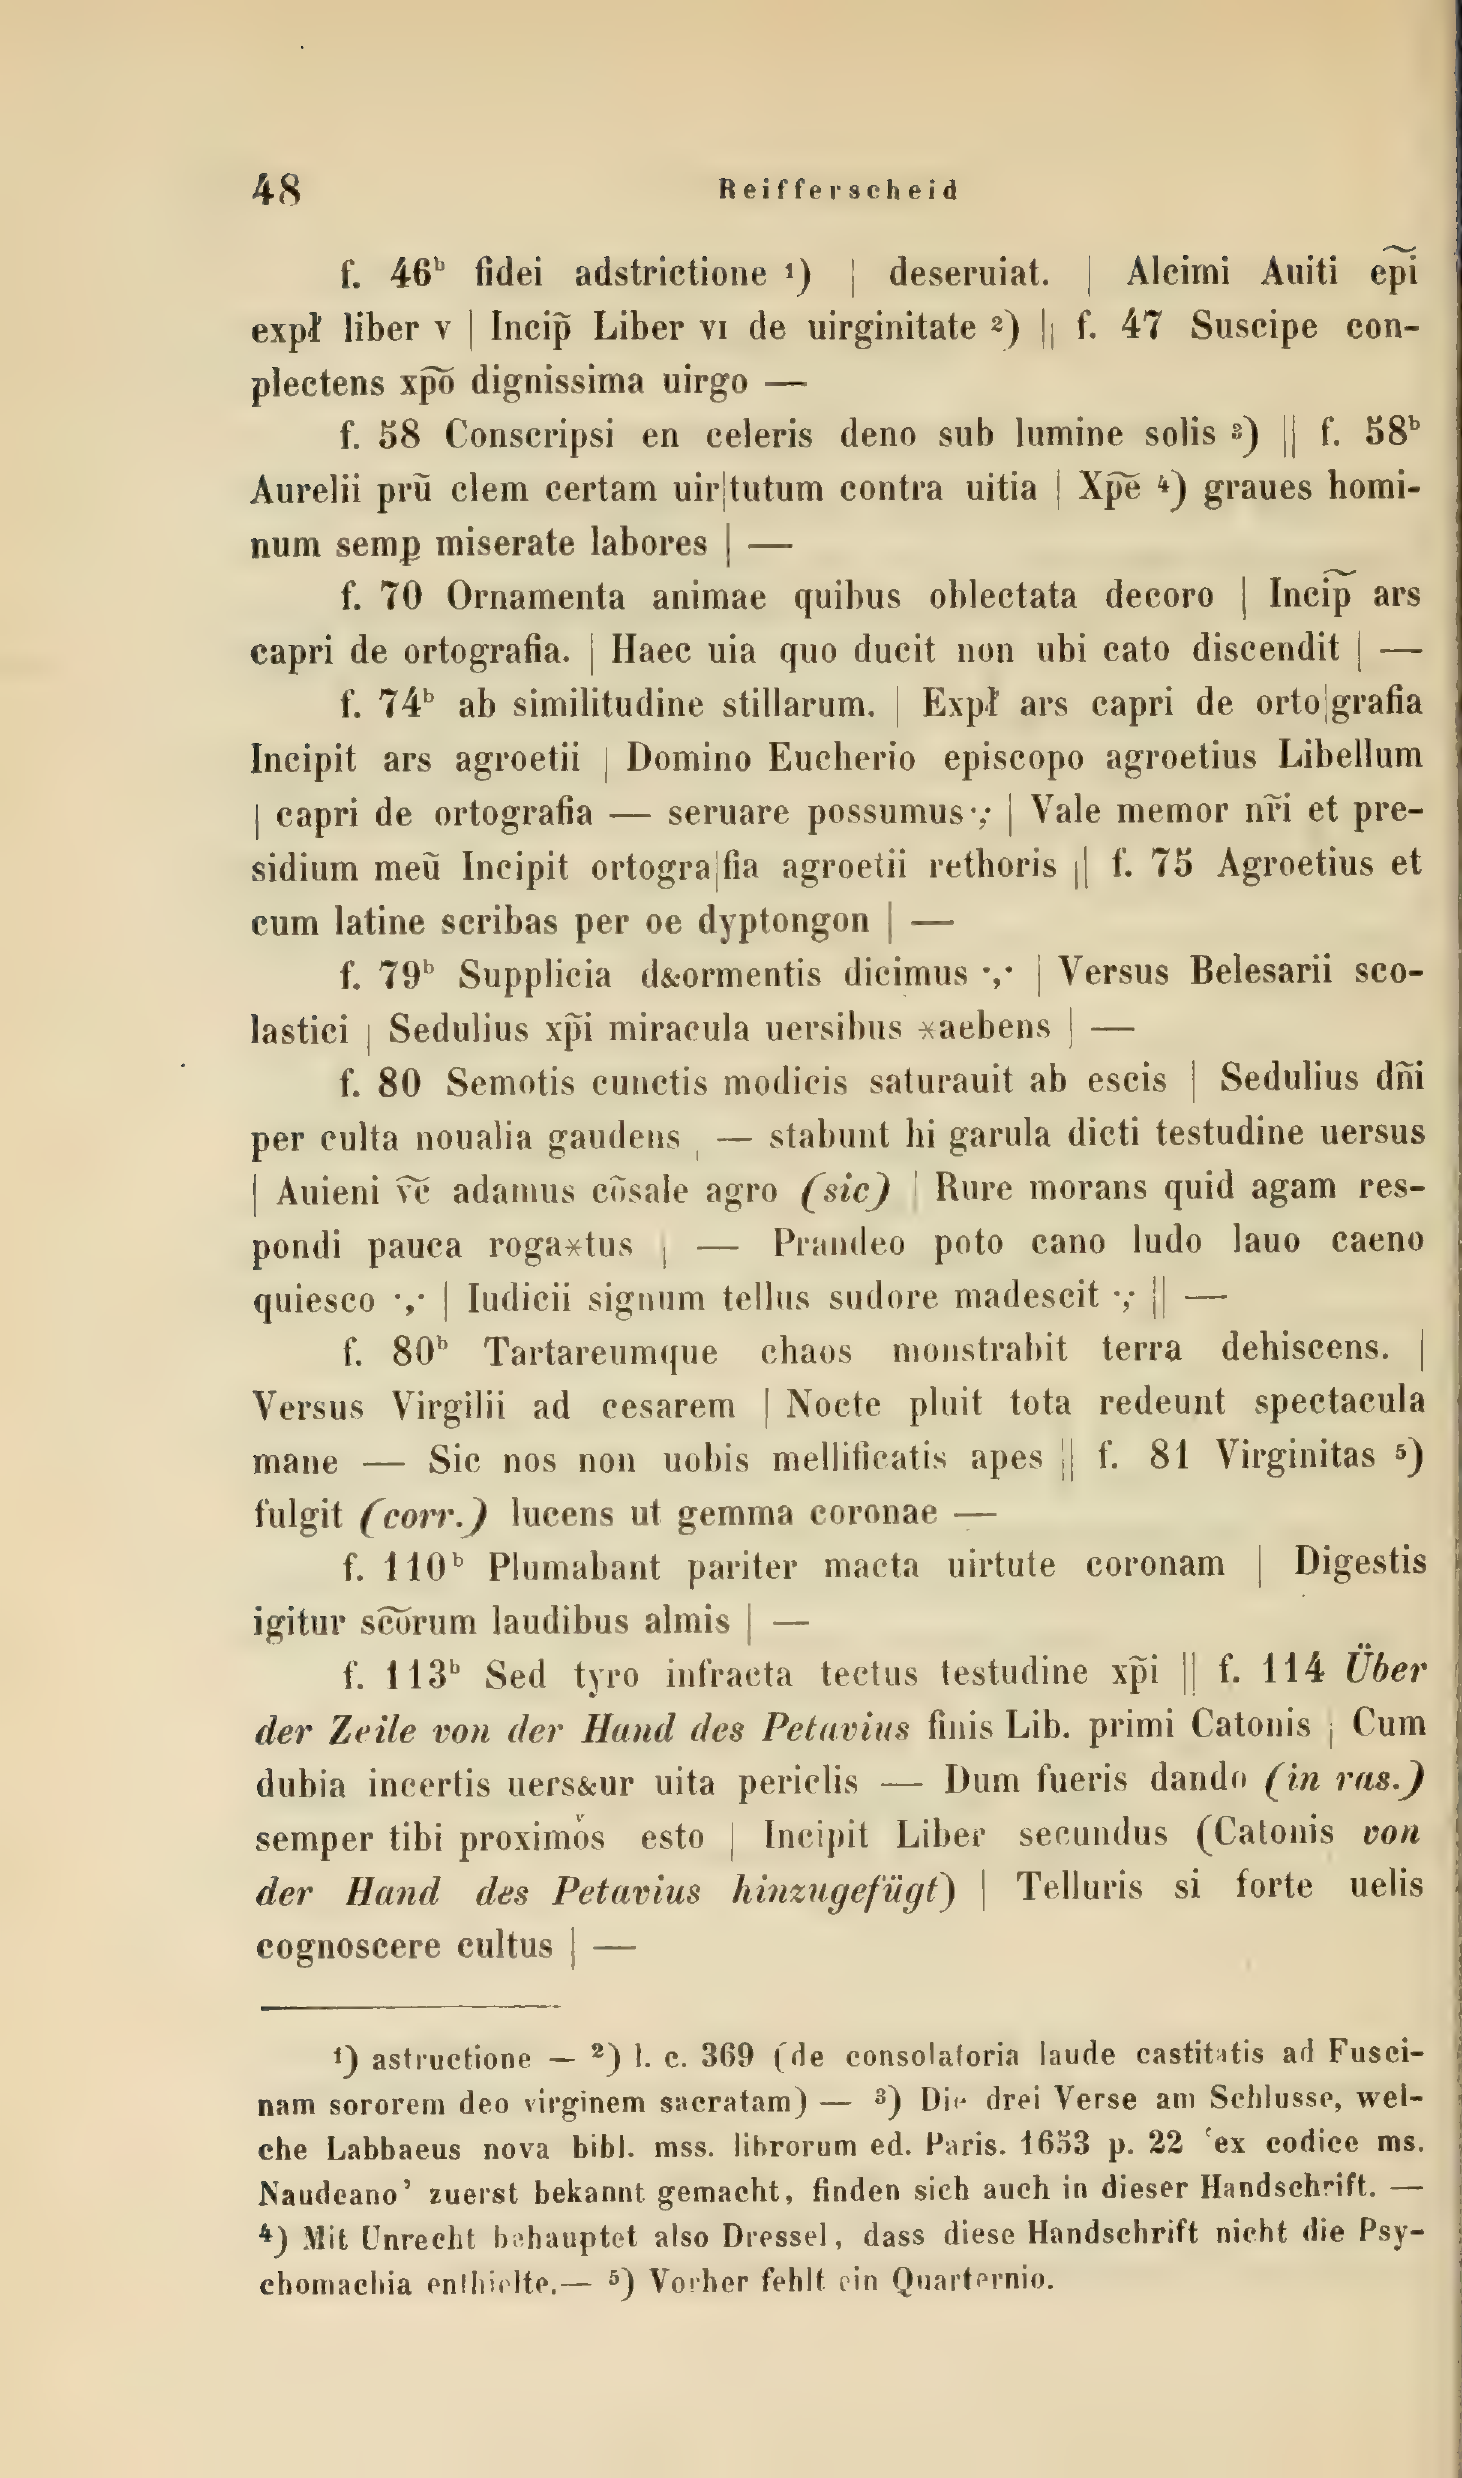 48 Reifferscheid
f. 46ᵇ fidei adstrictione ¹) | deseruiat. | Alcimi Auiti ep͠i
expł liber v | Incip̃ Liber vi de uirginitate ²) || f. 47 Suscipe con-
plectens xp͠o dignissima uirgo —
f. 58 Conscripsi en celeris deno sub lumine solis ³) || f. 58ᵇ
Aurelii prũ clem certam uir|tutum contra uitia | Xp͠e ⁴) graues homi-
num semꝑ miserate labores | —
f. 70 Ornamenta animae quibus oblectata decoro | Inci͠p ars
capri de ortografia. | Haec uia quo ducit non ubi cato discendit | —
f. 74ᵇ ab similitudine stillarum. | Expł ars capri de orto|grafia
Incipit ars agroetii | Domino Eucherio episcopo agroetius Libellum
| capri de ortografia — seruare possumus·,· | Vale memor nr̃i et pre-
sidium meũ Incipit ortogra|fia agroetii rethoris || f. 75 Agroetius et
cum latine scribas per oe dyptongon | —
f. 79ᵇ Supplicia d&ormentis dicimus ·,· | Versus Belesarii sco-
lastici | Sedulius xp̃i miracula uersibus *aebens | —
f. 80 Semotis cunctis modicis saturauit ab escis | Sedulius dñi
per culta noualia gaudens | — stabunt hi garula dicti testudine uersus
| Auieni v͠c adamus cõsale agro (sic) | Rure morans quid agam res-
pondi pauca roga*tus | — Prandeo poto cano ludo lauo caeno
quiesco ·,· | Iudicii signum tellus sudore madescit ·,· || —
f. 80ᵇ Tartareumque chaos monstrabit terra dehiscens. |
Versus Virgilii ad cesarem | Nocte pluit tota redeunt spectacula
mane — Sic nos non uobis mellificatis apes || f. 81 Virginitas ⁵)
fulgit (corr.) lucens ut gemma coronae —
f. 110ᵇ Plumabant pariter macta uirtute coronam | Digestis
igitur sc͠orum laudibus almis | —
f. 113ᵇ Sed tyro infracta tectus testudine xp̃i || f. 114 Über
der Zeile von der Hand des Petavius finis Lib. primi Catonis | Cum
dubia incertis uers&ur uita periclis — Dum fueris dando (in ras.)
semper tibi proximoͮs esto | Incipit Liber secundus (Catonis von
der Hand des Petavius hinzugefügt) | Telluris si forte uelis
cognoscere cultus | —
¹) astructione — ²) l. c. 369 (de consolatoria laude castitatis ad Fusci-
nam sororem deo virginem sacratam) — ³) Die drei Verse am Schlusse, wel-
che Labbaeus nova bibl. mss. librorum ed. Paris. 1653 p. 22 ‘ex codice ms.
Naudeano’ zuerst bekannt gemacht, finden sich auch in dieser Handschrift. —
⁴) Mit Unrecht behauptet also Dressel, dass diese Handschrift nicht die Psy-
chomachia enthielte.— ⁵) Vorher fehlt ein Quarternio.